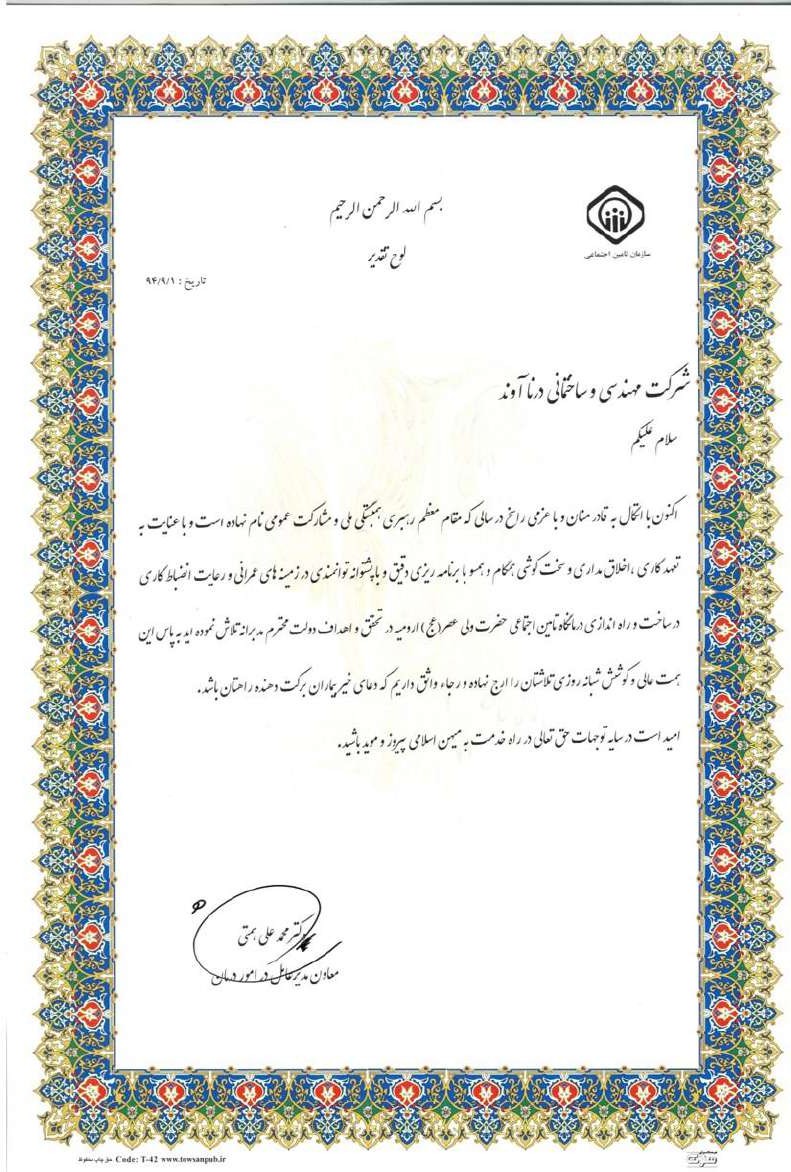 بسم الله الرحمن الرحیم
سازمان تامین اجتماعی
لوح تقدیر
تاریخ : ۹۴/۹/۱
شرکت مهندسی و ساختمانی درنا آوند
سلام علیکم
اکنون با اتکال به قادر منان و با عزمی راسخ در سالی که مقام معظم رهبری همبستگی ملی و مشارکت عمومی نام نهاده است و با عنایت به
تعهد کاری ، اخلاق مداری و سخت کوشی همگام و همسو با برنامه ریزی دقیق و با پشتوانه توانمندی در زمینه های عمرانی و رعایت انضباط کاری
در ساخت و راه اندازی درمانگاه تامین اجتماعی حضرت ولی عصر (عج) ارومیه در تحقق و اهداف دولت محترم مدبرانه تلاش نموده اید به پاس این
همت عالی و کوشش شبانه روزی تلاشتان را ارج نهاده و رجاء واثق داریم که دعای خیر بیماران برکت دهنده راهتان باشد.
امید است در سایه توجهات حق تعالی در راه خدمت به میهن اسلامی پیروز و موید باشید.
دکتر محمد علی همتی
معاون مدیرعامل در امور درمان
حق چاپ محفوظ Code: T-42 www.towsanpub.ir